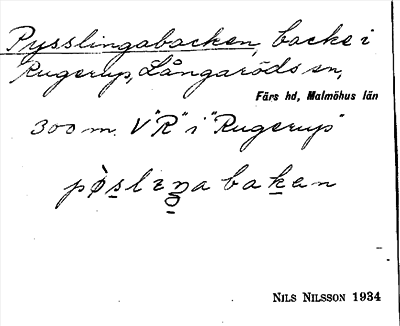 Pysslingabacken, backe i
Rugerup, Långaröds sn,
Färs hd, Malmöhus län
300 m. V "R" i "Rugerup"
pø̀slıŋabakən
NILS NILSSON 1934